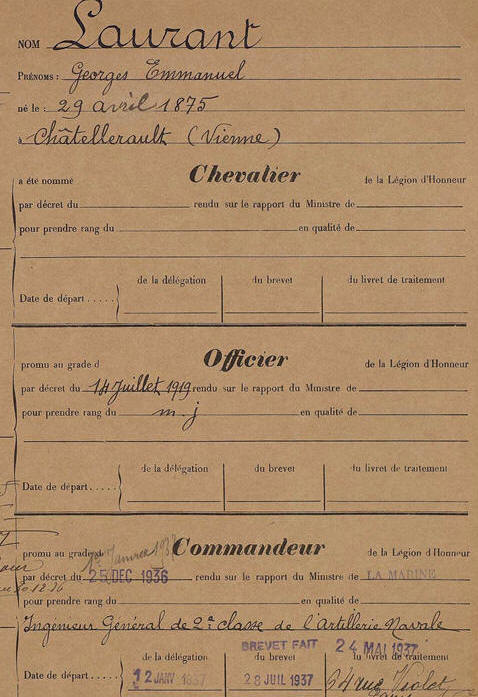 NOM Laurant
PRÉNOMS : Georges Emmanuel
né le : 29 avril 1875
à Châtellerault (Vienne)
a été nommé Chevalier de la Légion d'Honneur
par décret du rendu sur le rapport du Ministre de
pour prendre rang du en qualité de
de la délégation du brevet du livret de traitement
Date de départ .....
promu au grade d Officier de la Légion d'Honneur
par décret du 14 Juillet 1919 rendu sur le rapport du Ministre de
pour prendre rang du m. j en qualité de
de la délégation du brevet du livret de traitement
Date de départ .....
promu au grade d Commandeur de la Légion d'Honneur
par décret du 25 DEC 1936 rendu sur le rapport du Ministre de LA MARINE
pour prendre rang du en qualité de
Ingénieur Général de 2e classe de l'artillerie Navale
BREVET FAIT 24 MAI 1937
de la délégation du brevet du livret de traitement
Date de départ ..... 12 JANV 1937 28 JUIL 1937